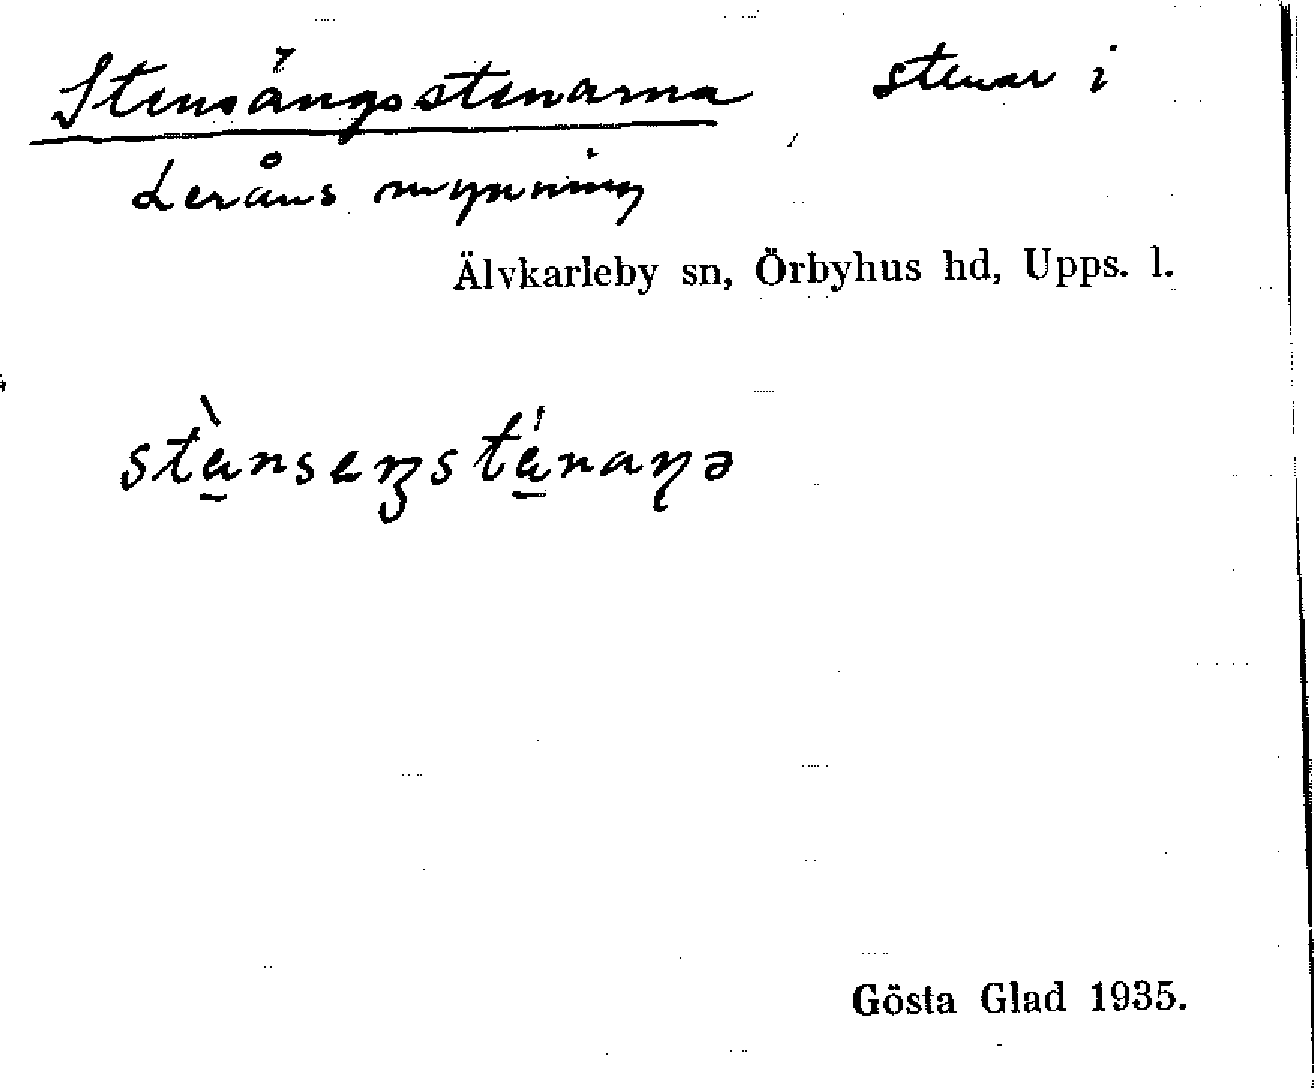 Stensängsstenarna stenar i
Leråns mynning
Älvkarleby sn, Örbyhus hd, Upps. l.
Gösta Glad 1935.